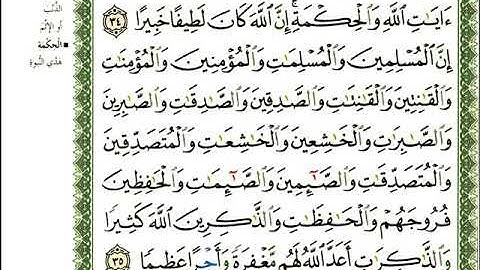 الذَّنْبَ
أو الإثمَ
الحِكْمة
هَدْيِ النُّبُوَّةِ
ءَايَٰتِ ٱللَّهِ وَٱلْحِكْمَةِ ۚ إِنَّ ٱللَّهَ كَانَ لَطِيفًا خَبِيرًا ٣٤
إِنَّ ٱلْمُسْلِمِينَ وَٱلْمُسْلِمَٰتِ وَٱلْمُؤْمِنِينَ وَٱلْمُؤْمِنَٰتِ
وَٱلْقَٰنِتِينَ وَٱلْقَٰنِتَٰتِ وَٱلصَّٰدِقِينَ وَٱلصَّٰدِقَٰتِ وَٱلصَّٰبِرِينَ
وَٱلصَّٰبِرَٰتِ وَٱلْخَٰشِعِينَ وَٱلْخَٰشِعَٰتِ وَٱلْمُتَصَدِّقِينَ
وَٱلْمُتَصَدِّقَٰتِ وَٱلصَّٰٓئِمِينَ وَٱلصَّٰٓئِمَٰتِ وَٱلْحَٰفِظِينَ
فُرُوجَهُمْ وَٱلْحَٰفِظَٰتِ وَٱلذَّٰكِرِينَ ٱللَّهَ كَثِيرًا
وَٱلذَّٰكِرَٰتِ أَعَدَّ ٱللَّهُ لَهُم مَّغْفِرَةً وَأَجْرًا عَظِيمًا ٣٥